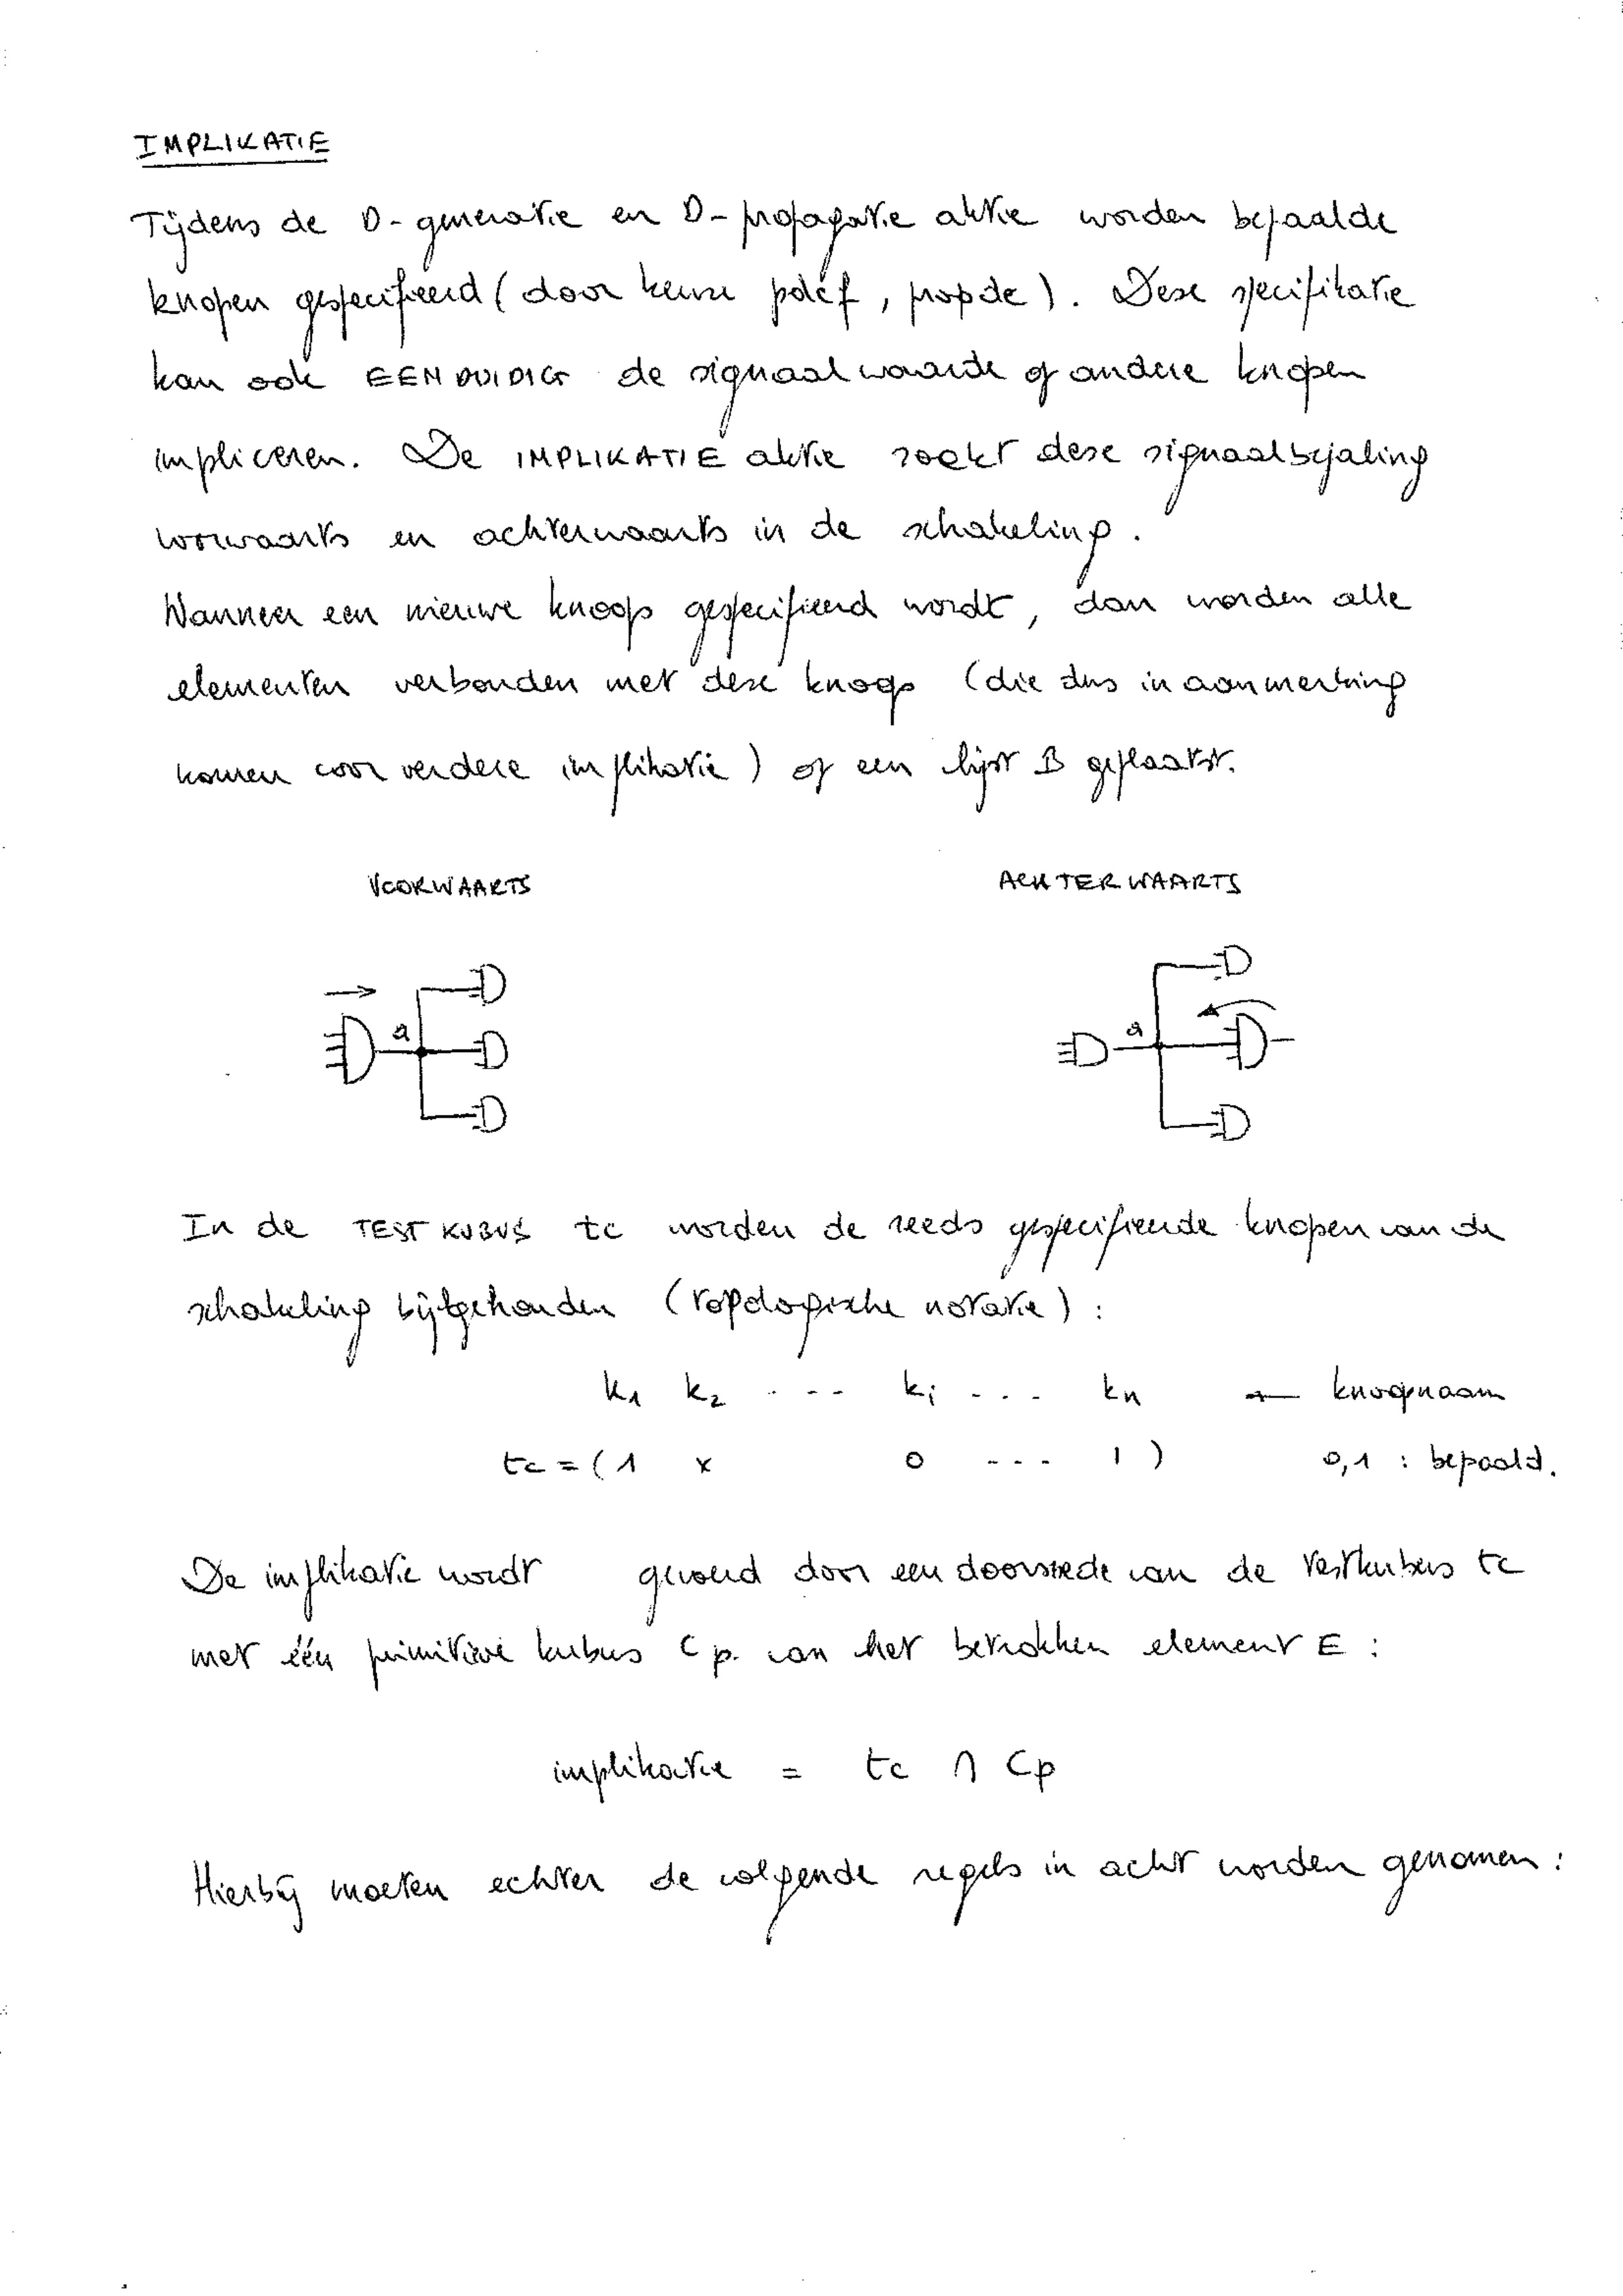 IMPLIKATIE
Tijdens de D-generatie en D-propagatie aktie worden bepaalde
knopen gespecifieerd (door keuze pdcf, propdc). Deze specifikatie
kan ook EENDUIDIG de signaalwaarde op andere knopen
impliceren. De IMPLIKATIE aktie zoekt deze signaalbepaling
voorwaarts en achterwaarts in de schakeling.
Wanneer een nieuwe knoop gespecifieerd wordt, dan worden alle
elementen verbonden met deze knoop (die dus in aanmerking
komen voor verdere implikatie) op een lijst B geplaatst.
VOORWAARTS ACHTERWAARTS
a a
In de TESTKUBUS tc worden de reeds gespecifieerde knopen van de
schakeling bijgehouden (topologische notatie):
k1 k2 ... ki ... kn ← knoopnaam
tc = (1 x 0 ... 1) 0,1 : bepaald.
De implikatie wordt gevoerd door een doorsnede van de testkubus tc
met één primitieve kubus Cp. van het betrokken element E :
implikatie = tc ∩ Cp
Hierbij moeten echter de volgende regels in acht worden genomen: